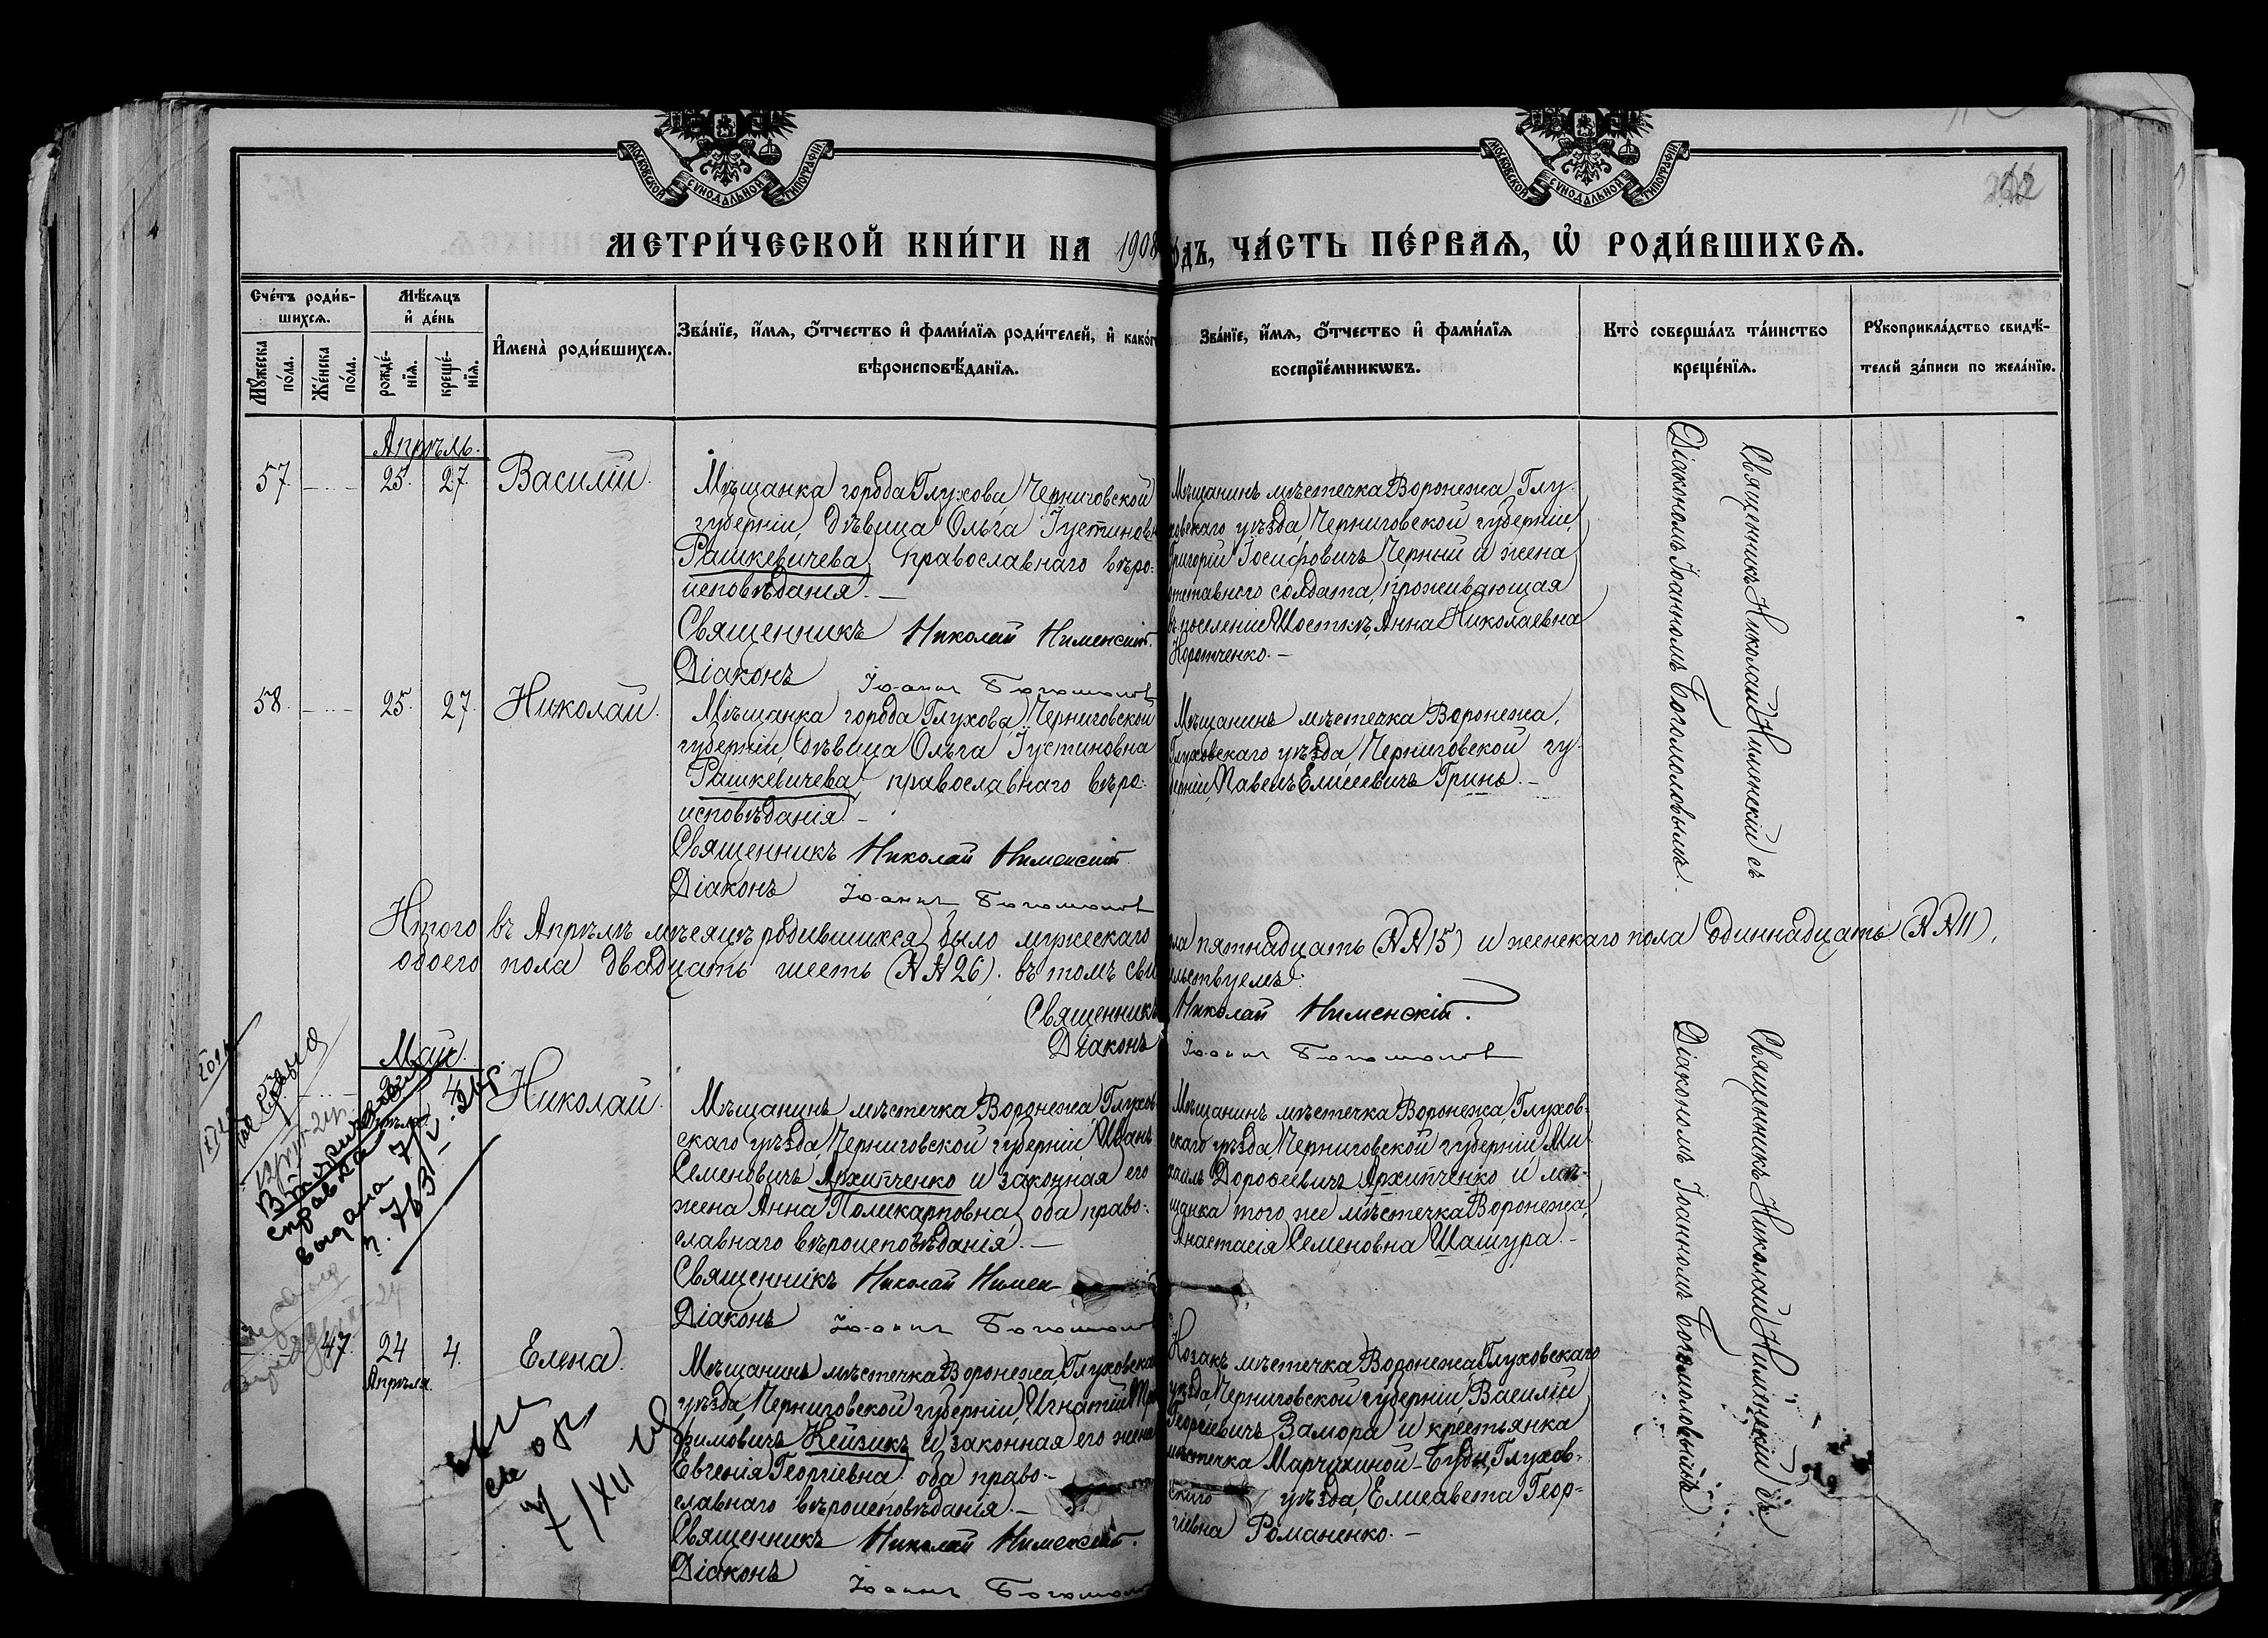 МОСКОВСКОЙ СУНОДАЛЬНОЙ ТИПОГРАФІИ
МОСКОВСКОЙ СУНОДАЛЬНОЙ ТИПОГРАФІИ
МЕТРИ́ЧЕСКОЙ КНИ́ГИ НА 1908
ОДЪ, ЧА́СТЬ ПЕ́РВАѦ, Ѡ҆ РОДИ́ВШИХСѦ.
Сче́тъ роди́в-
шихсѧ.
Мꙋ́жеска по́ла.
Же́нска по́ла.
Мѣ́сѧцъ
и҆ де́нь
рожде́-
нїѧ.
креще́-
нїѧ.
И҆мена̀ роди́вшихсѧ.
Зва́нїе, и҆́мѧ, ѻ҆́тчество и҆ фами́лїѧ роди́телей, и҆ како́г
вѣроисповѣ́данїѧ.
Зва́нїе, и҆́мѧ, ѻ҆́тчество и҆ фами́лїѧ
воспрїе́мникѡвъ.
Кто̀ соверша́лъ та́инство
креще́нїѧ.
Рꙋкоприкла́дство свидѣ́-
телей за́писи по жела́нїю.
Апрѣль.
57. 25. 27. Василій.
Мѣщанка города Глухова, Черниговской
губерніи, дѣвица Ольга Іустиновн
Рашкевичева, православнаго вѣро-
исповѣданія. —
Священникъ Николай Нименскій.
Діаконъ Іоаннъ Богомолов
Мѣщанинъ мѣстечка Воронежа, Глу-
ховскаго уѣзда, Черниговской губерніи,
Григорій Іосифовичъ Черный и жена
отставного солдата, проживающая
въ поселеніи Шосткѣ, Анна Николаевна
Коротченко. —
58. 25. 27. Николай.
Мѣщанка города Глухова, Черниговской
губерніи, дѣвица Ольга Іустиновна
Рашкевичева, православнаго вѣро-
исповѣданія. —
Священникъ Николай Нименскій.
Діаконъ Іоаннъ Богомолов
Мѣщанинъ мѣстечка Воронежа,
Глуховскаго уѣзда, Черниговской гу-
берніи, Павелъ Елисеевичъ Гринь. —
Священникъ Николай Нименскій съ
Діакономъ Іоанномъ Богомоловымъ.
Итого въ Апрѣлѣ мѣсяцѣ родившихся было мужескаго пола пятнадцать (№№ 15) и женскаго пола одиннадцать (№№ 11),
обоего пола двадцать шесть (№№ 26). въ томъ свидѣтельствуемъ:
Священникъ Николай Нименскій.
Діаконъ Іоаннъ Богомолов
Май.
Николай.
Мѣщанинъ мѣстечка Воронежа, Глухов-
скаго уѣзда, Черниговской губерніи, Иванъ
Семеновичъ Архипченко и законная его
жена Анна Поликарповна, оба право-
славнаго вѣроисповѣданія. —
Священникъ Николай Нимен
Діаконъ Іоаннъ Богомолов
Мѣщанинъ мѣстечка Воронежа, Глухов-
скаго уѣзда, Черниговской губерніи, Ми-
хаилъ Дороѳеевичъ Архипченко и мѣ-
щанка того же мѣстечка Воронежа,
Анастасія Семеновна Шашура. —
справка
видана 7/V
п. 763
47. 24 Апрѣля. 4. Елена.
Мѣщанинъ мѣстечка Воронежа, Глуховска
уѣзда, Черниговской губерніи, Игнатій Тро
фимовичъ Кейзикъ и законная его жена
Евгенія Георгіевна, оба право-
славнаго вѣроисповѣданія. —
Священникъ Николай Нименскій.
Діаконъ Іоаннъ Богомолов
Козакъ мѣстечка Воронежа, Глуховскаго
уѣзда, Черниговской губерніи, Василій
Георгіевичъ Замора и крестьянка
мѣстечка Марчихиной-Буды, Глухов-
скаго уѣзда, Елисавета Геор-
гіевна Романенко. —
7/XII
Священникъ Николай Нименскій съ
Діакономъ Іоанномъ Богомоловымъ